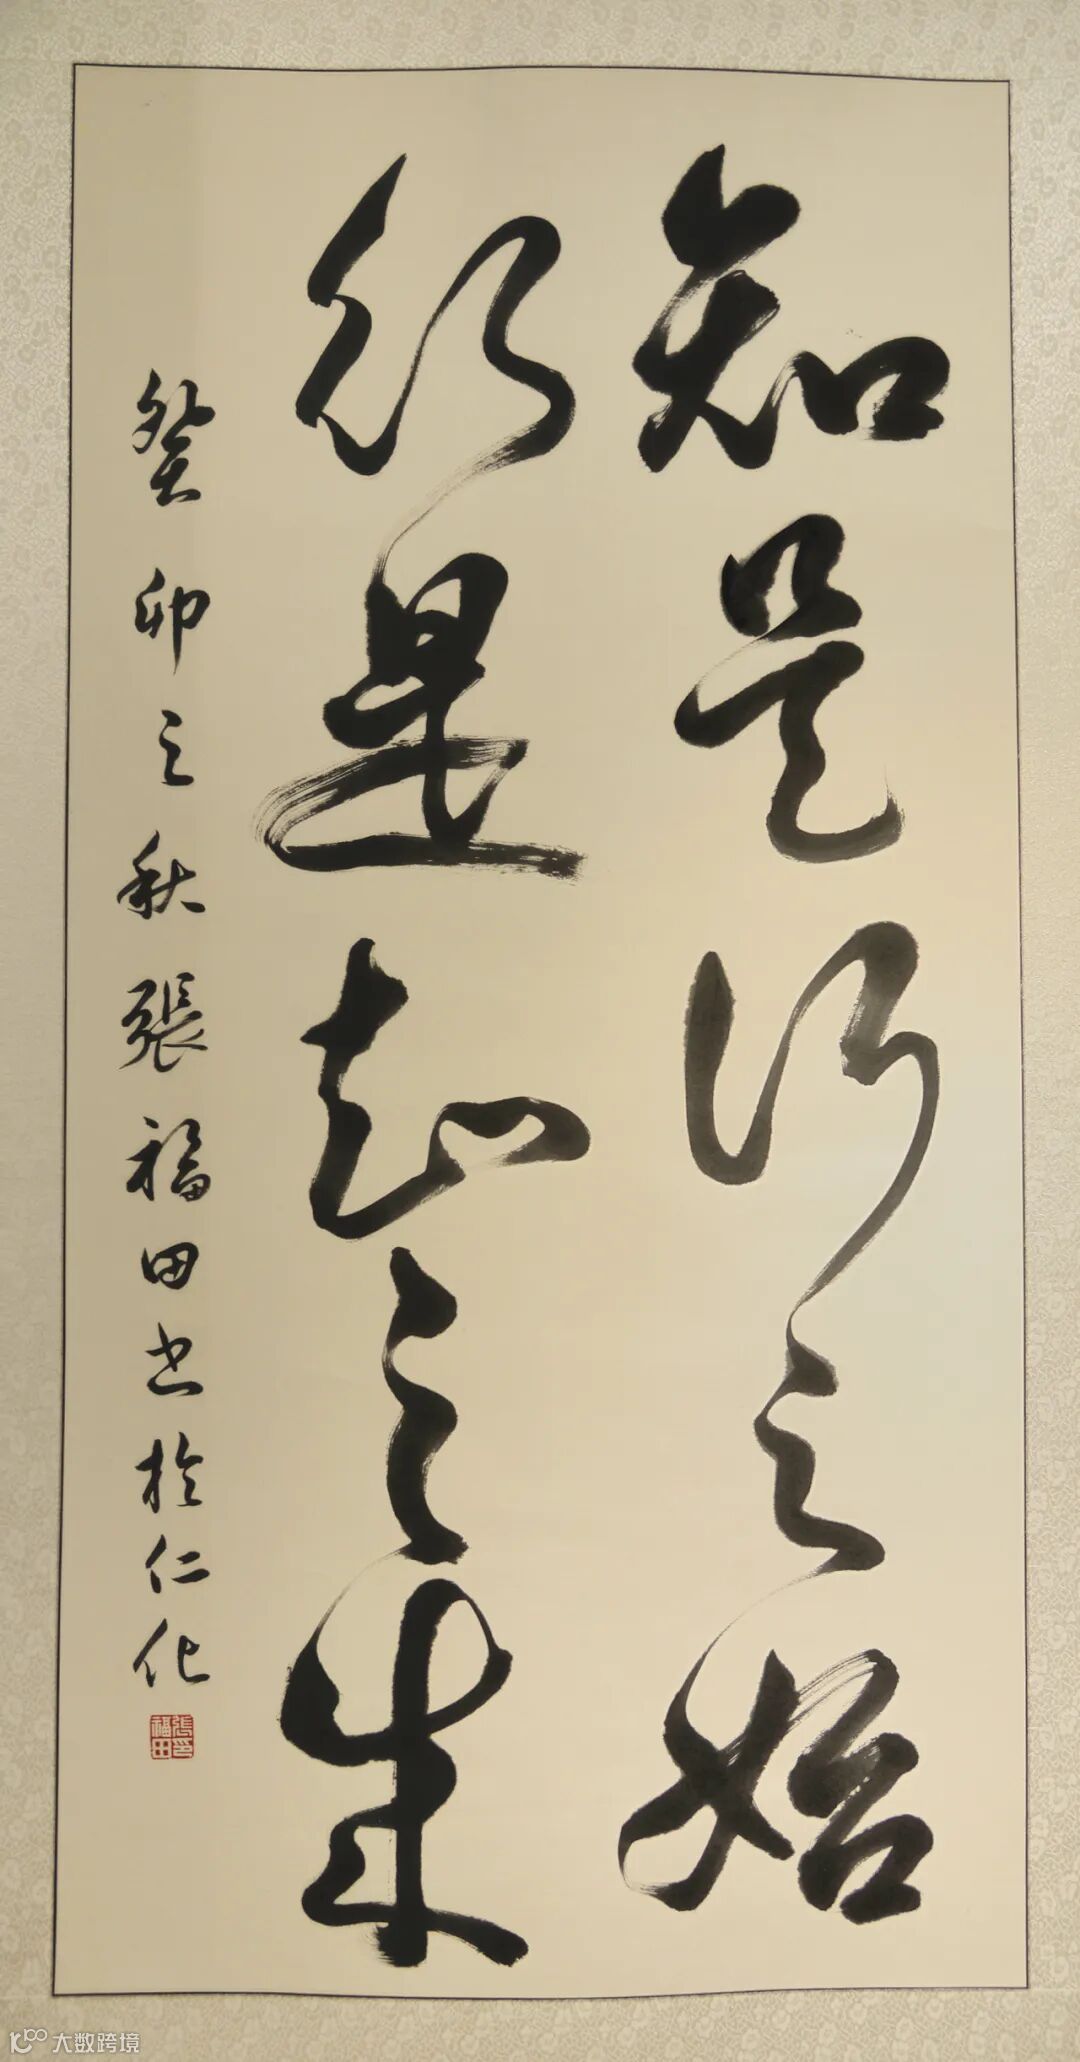 知是行之始
行是知之成
癸卯之秋張福田书於仁化
張印福田
大数跨境